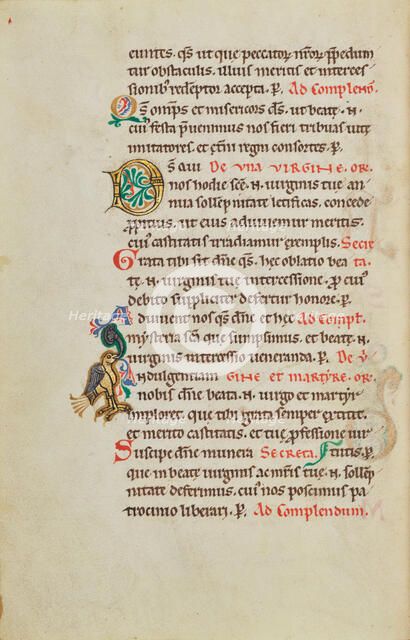 cunt&s. qs ut que peccatoꝝ nr̄oꝝ p̱pedun
tur obstaculis. illius meritis et interces
sionibꝰ redēptor accepta. ꝑ. Ad Complend̄.
Qs om̄ps et misericors ds̄. ut beatę .N.
cuiꝰ festa p̄uenimus nos fieri tribuas uitę
imitatores. et et̄ni regni consortes. ꝑ.
Ds qui De una virgine. or.
nos hodie sc̄ę .N. uirginis tuę an
nua sollēpnitate lętificas. concede
ꝓpitius. ut eius adiuuemur meritis.
cuiꝰ castitatis irradiamur exemplis. Secr̄
Grata tibi sit dn̄e qs̄. hęc oblatio bea ta.
tę .N. uirginis tuę intercessione. ꝓ cuiꝰ
debito suppliciter defertur honore. ꝑ.
Adiuuent nos qs̄ dn̄e et hęc Ad Compl̄.
mysteria sc̄a que sumpsimus. et beatę .N.
uirginis intercessio ueneranda. ꝑ. De v̄
Indulgentiam gine et martyre. or.
nobis dn̄e beata .N. uirgo et martyr
imploret. que tibi grata semper extitit.
et merito castitatis. et tuę ꝓfessione uir
Suscipe dn̄e munera Secreta. tutis. ꝑ.
que in beatę uirginis ac m̄ris tuę .N. sollēp
nitate deferimus. cuiꝰ nos poscimus pa
trocinio liberari. ꝑ. Ad Complendum.
Heritage
Heritage
Heritage